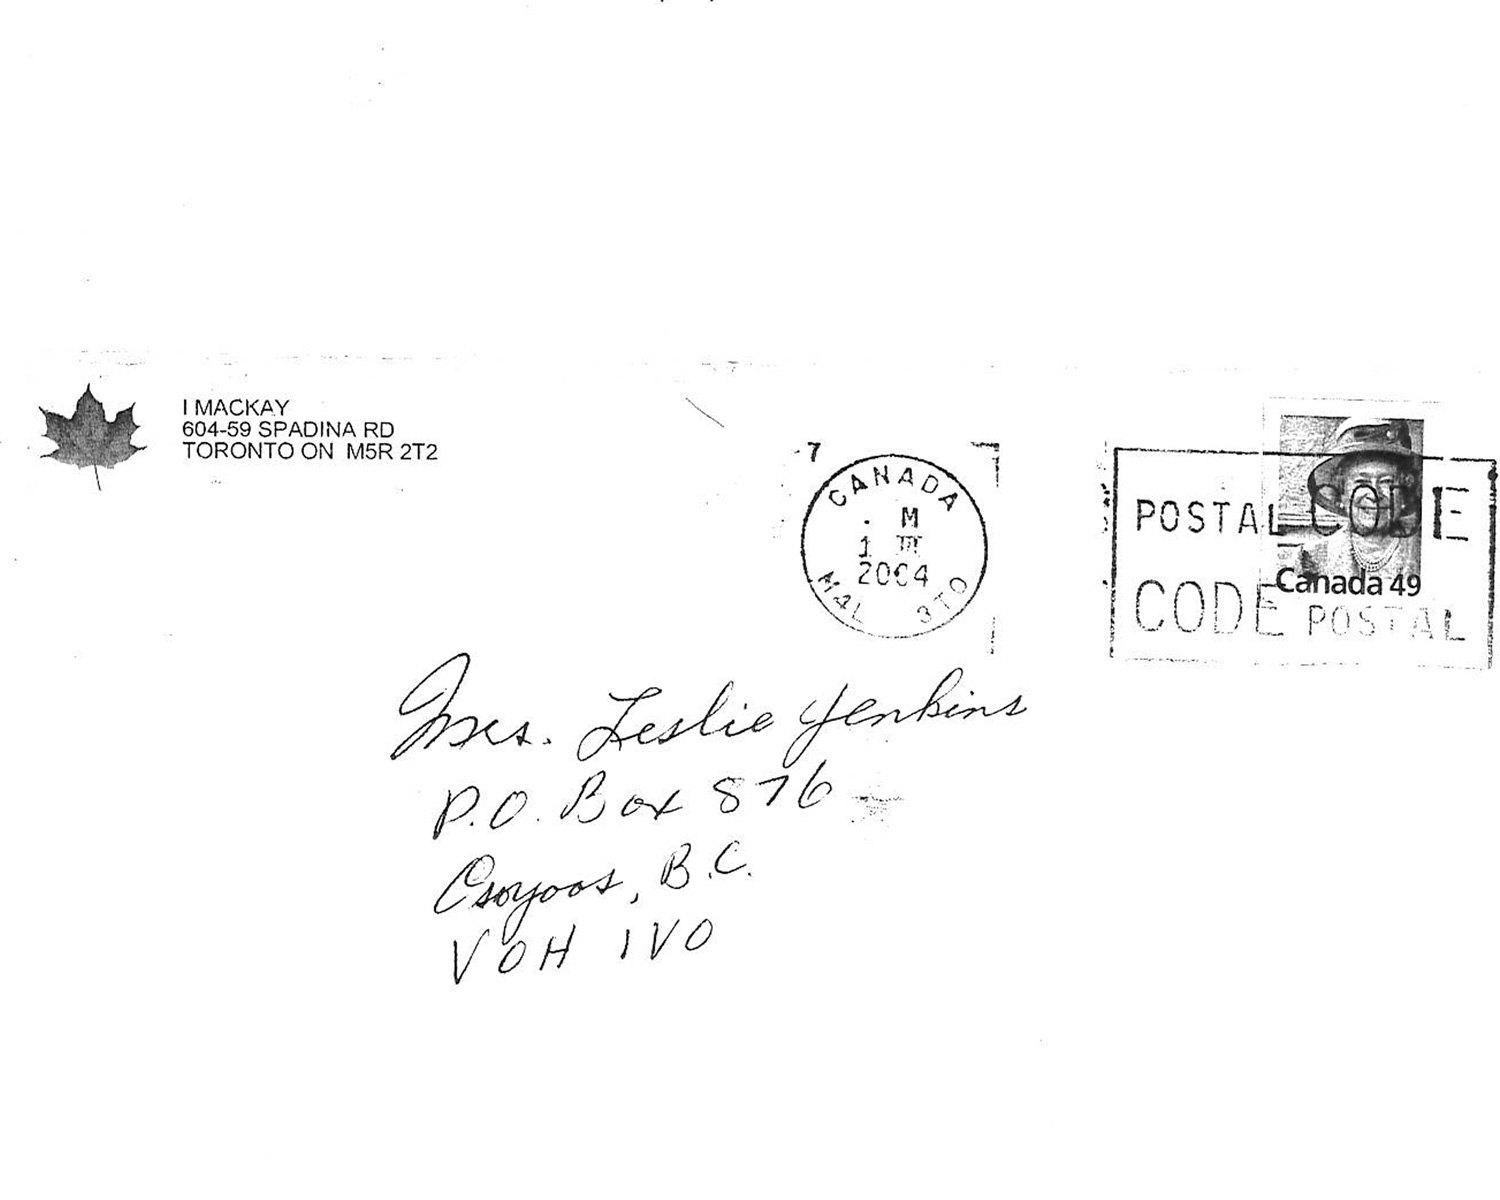 I MACKAY
604-59 SPADINA RD
TORONTO ON M5R 2T2
7
CANADA
. M
1 III
2004
M4L 3T0
POSTAL CODE
CODE POSTAL
Canada 49
Mrs. Leslie Jenkins
P.O. Box 876
Osoyoos, B.C.
V0H 1V0